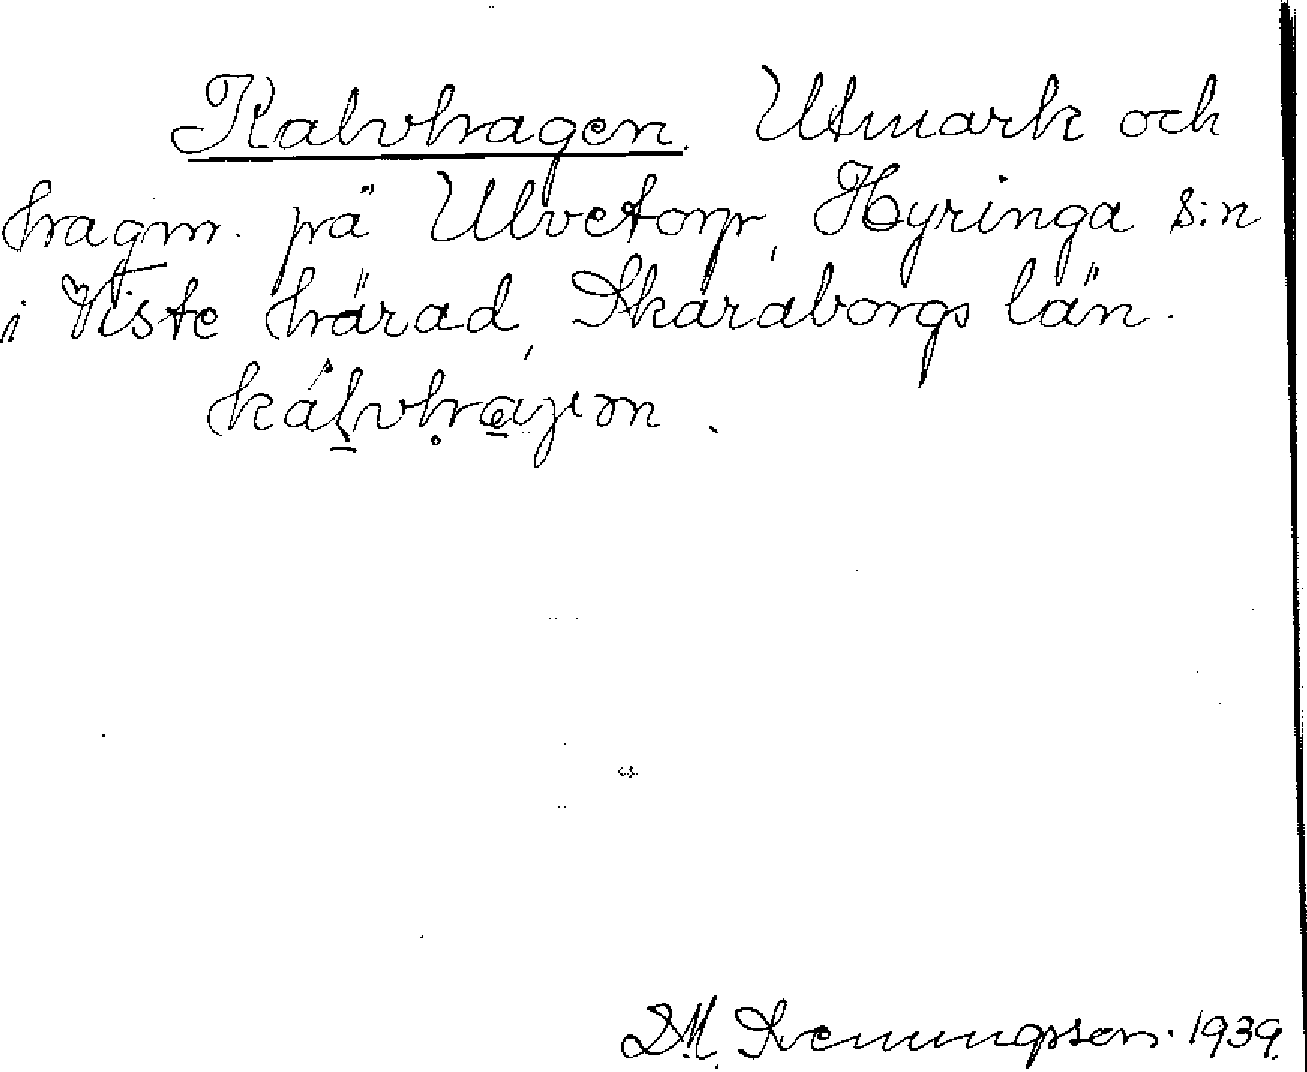 Kalvhagen. Utmark och
hagm. på Ulvetorp, Hyringa s:n
i Viste härad, Skaraborgs län.
D.M. Svenungsson. 1939.